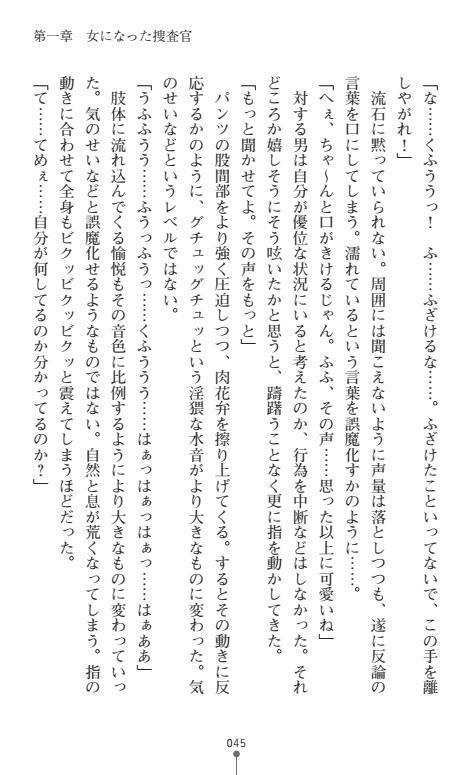 第一章　女になった捜査官
「な……くふううっ！　ふ……ふざけるな……。ふざけたこといってないで、この手を離
しやがれ！」
　流石に黙っていられない。周囲には聞こえないように声量は落としつつも、遂に反論の
言葉を口にしてしまう。濡れているという言葉を誤魔化すかのように……。
「へぇ、ちゃ～んと口がきけるじゃん。ふふ、その声……思った以上に可愛いね」
　対する男は自分が優位な状況にいると考えたのか、行為を中断などはしなかった。それ
どころか嬉しそうにそう呟いたかと思うと、躊躇うことなく更に指を動かしてきた。
「もっと聞かせてよ。その声をもっと」
　パンツの股間部をより強く圧迫しつつ、肉花弁を擦り上げてくる。するとその動きに反
応するかのように、グチュッグチュッという淫猥な水音がより大きなものに変わった。気
のせいなどというレベルではない。
「うふふうう……ふうっふうっ……くふううう……はぁっはぁっはぁっ……はぁああ」
　肢体に流れ込んでくる愉悦もその音色に比例するようにより大きなものに変わっていっ
た。気のせいなどと誤魔化せるようなものではない。自然と息が荒くなってしまう。指の
動きに合わせて全身もビクッビクッビクッと震えてしまうほどだった。
「て……てめぇ……自分が何してるのか分かってるのか？」
045